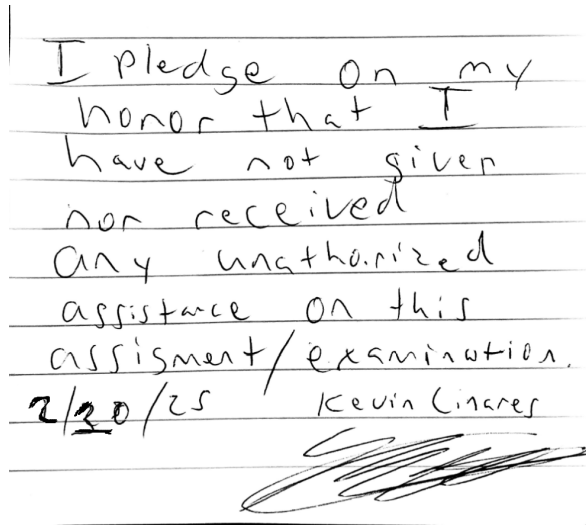 I pledge on my
honor that I
have not given
nor received
any unathorized
assistance on this
assigment/examination.
2/20/25 Kevin Linares